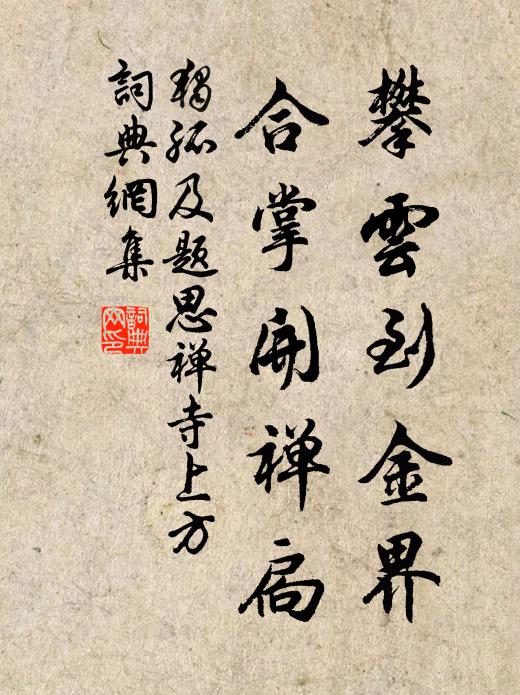 攀雲到金界
合掌開禅扃
独孤及题思禅寺上方
詞典網集
詞典网印